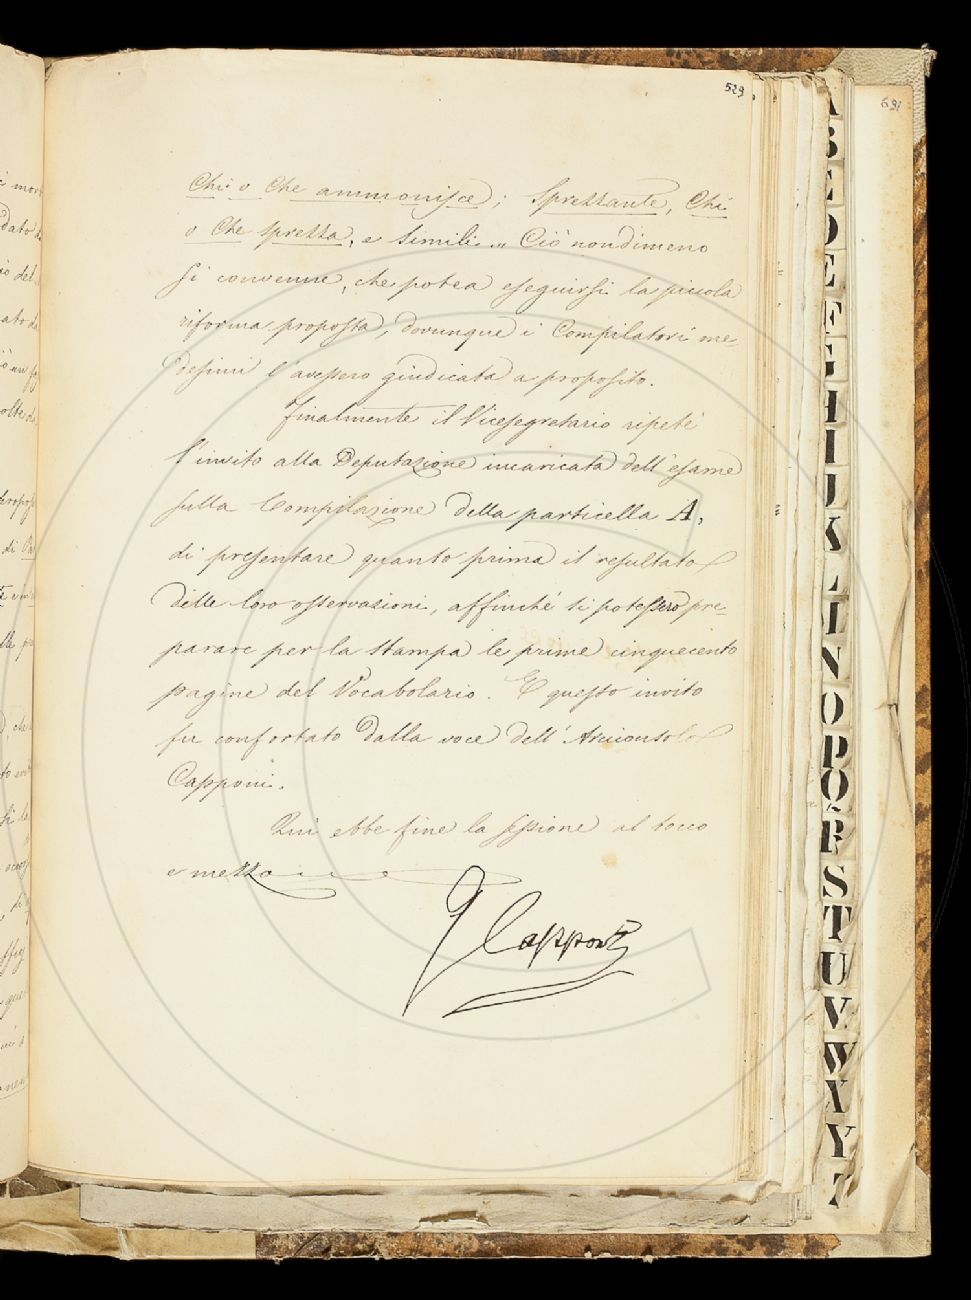 529
591
Chi o Che ammonisce; Sprezzante, Chi
o Che sprezza, e simili „ Ciò nondimeno
si convenne, che potea eseguirsi la piccola
riforma proposta, dovunque i Compilatori me-
desimi l'avessero giudicata a proposito.
Finalmente il Vicesegretario ripetè
l'invito alla Deputazione incaricata dell'esame
sulla Compilazione della particella A,
di presentare quanto prima il resultato
delle loro osservazioni, affinchè si potessero pre-
parare per la stampa le prime cinquecento
pagine del Vocabolario. E questo invito
fu confortato dalla voce dell'Arciconsolo
Capponi.
Qui ebbe fine la sessione al tocco
e mezzo
G Capponi
A
B
E
D
E
F
G
H
I
J
K
L
I
N
O
P
Q
R
S
T
U
V
W
X
Y
Z